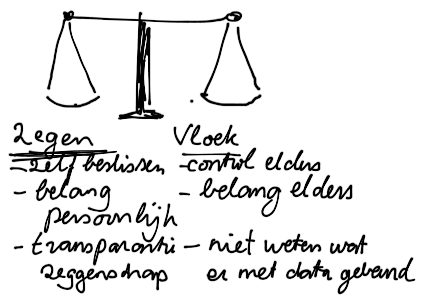 Zegen
- zelf beslissen
- belang
persoonlijk
- transparantie
zeggenschap
Vloek
- control elders
- belang elders
- niet weten wat
er met data gebeurd